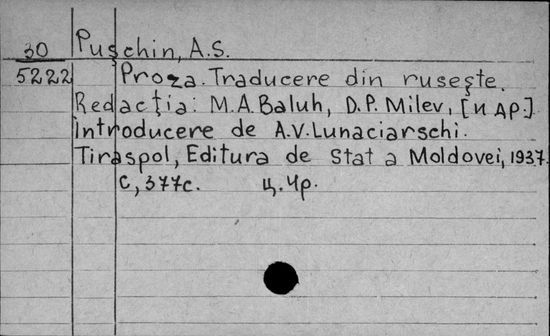 30 Puşchin, A.S.
5222 Proza. Traducere din ruseşte.
Redacţia: M.A. Baluh, D.P. Milev, [и др.]
Introducere de A.V. Lunaciarschi.
Tiraspol, Editura de Stat a Moldovei, 1937.
C, 377c. ц. 4р.